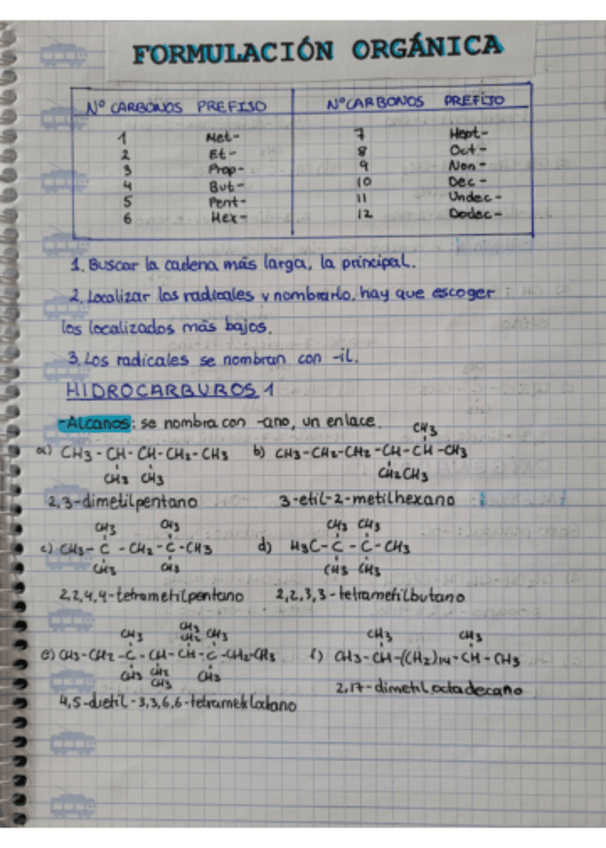 FORMULACIÓN ORGÁNICA
Nº CARBONOS PREFIJO Nº CARBONOS PREFIJO
1 Met- 7 Hept-
2 Et- 8 Oct-
3 Prop- 9 Non-
4 But- 10 Dec-
5 Pent- 11 Undec-
6 Hex- 12 Dodec-
1. Buscar la cadena más larga, la principal.
2. Localizar los radicales y nombrarlo, hay que escoger
los localizados más bajos.
3. Los radicales se nombran con -il.
HIDROCARBUROS 1
-Alcanos: se nombra con -ano, un enlace.
CH3
a) CH3-CH-CH-CH2-CH3 b) CH3-CH2-CH2-CH-CH-CH3
CH3 CH3 CH2CH3
2,3-dimetilpentano 3-etil-2-metilhexano
CH3 CH3 CH3 CH3
c) CH3-C-CH2-C-CH3 d) H3C-C-C-CH3
CH3 CH3 CH3 CH3
2,2,4,4-tetrametilpentano 2,2,3,3-tetrametilbutano
CH3
CH3 CH2 CH3 CH3 CH3
e) CH3-CH2-C-CH-CH-C-CH2-CH3 f) CH3-CH-((CH2)14-CH-CH3
CH3 CH2 CH3
CH3
2,17-dimetiloctadecano
4,5-dietil-3,3,6,6-tetrametiloctano